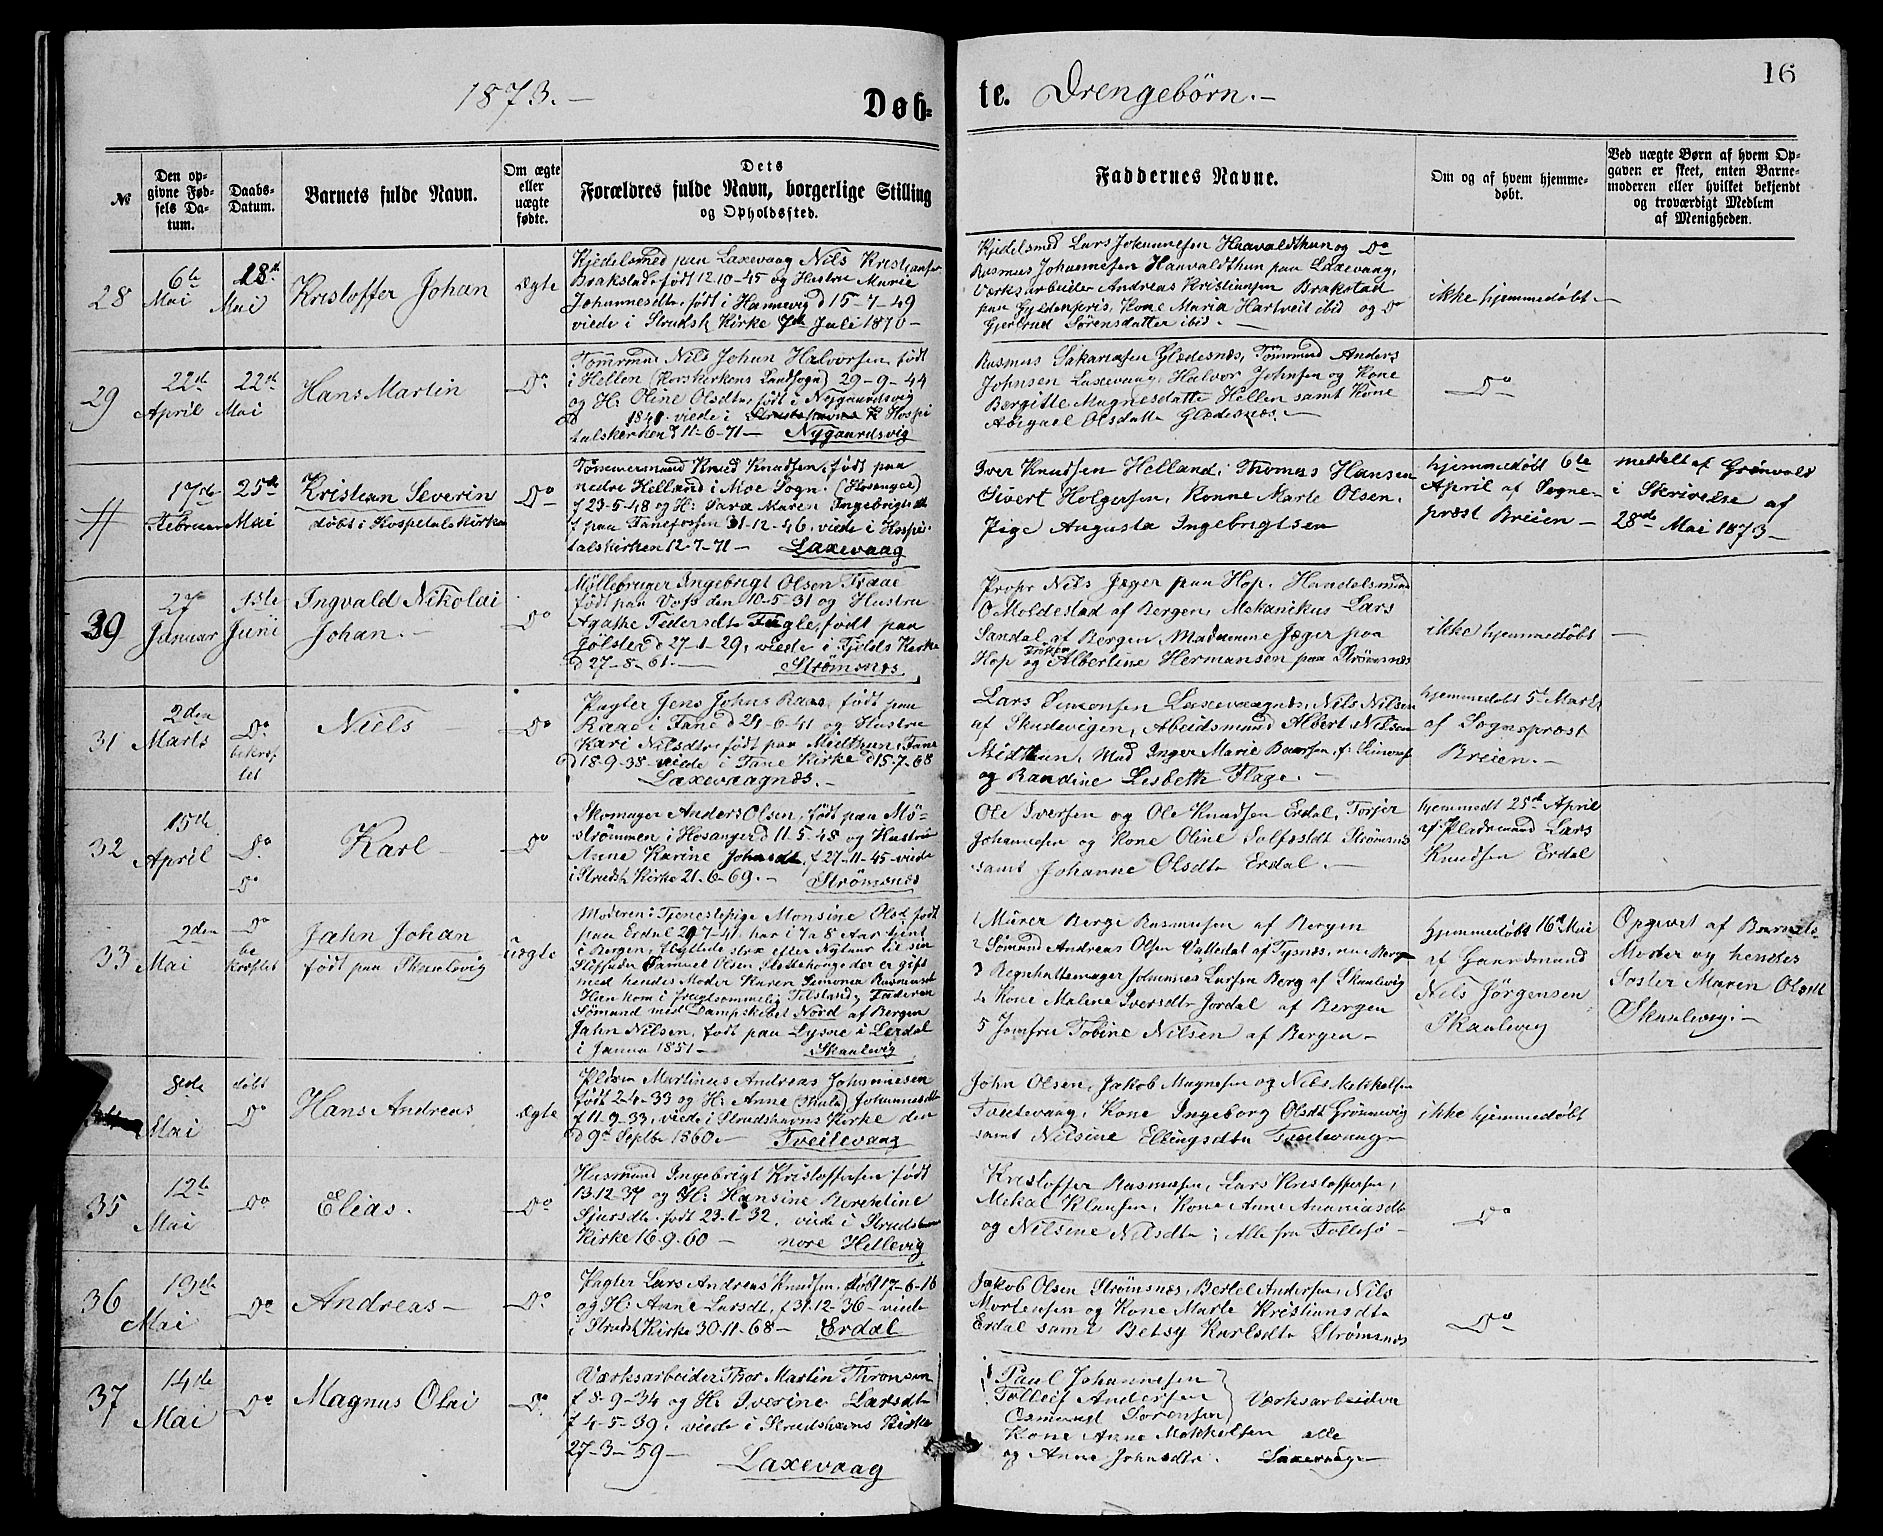 1873.–
Døb-
te. Drengebørn.–
16
№
Den op-
givne Fød-
sels Da-
tum.
Daabs-
Datum.
Barnets fulde Navn.
Om ægte
eller
uægte
fødte.
Dets
Forældres fulde Navn, borgerlige Stilling
og Opholdssted.
Faddernes Navne.
Om og af hvem hjemme-
døbt.
Ved uægte Børn af hvem Op-
gaven er skeet, enten Barne-
moderen eller hvilket bekjendt
og troværdigt Medlem
af Menigheden.
28
6te
Mai
18de
Mai
Kristoffer Johan
ægte
Kjedelsmed paa Laxevaag Nils Kristiansen
Brakstad, født 12-10-45 og Hustru Marie
Johannesdtr. født i Hannevig d 15-7-49
viede i Strudsh Kirke 7de Juli 1870–
Kjedelsmed Lars Johannesen Haavaldthun og Do
Rasmus Johannesen Haavaldthun paa Laxevaag,
Værksarbeider Andreas Kristiansen Brakstad
paa Gyldenpris, Kone Maria Hartveit ibid og Do
Gjertrud Sørensdatter ibid.–
ikke hjemmedøbt.–
29
22de
April
22de
Mai
Hans Martin
Do
Tømrmd Nils Johan Halvorsen født
i Hellen (Korskirkens Landsogn) 29-9-44
og H: Oline Olsdtr, født i Nygaardsvig
d 1841. viede i Hospi
talskirken d 11-6-71– Nygaardsvig
Rasmus Sakariasen Glædesnæs, Tømrmd Anders
Johnsen Laxevaag, Halvor Johnsen og Kone
Bergitte Magnesdatte Hellen samt Kone
Abigael Olsdatte Glædesnæs.–
Do
17de
Februar
25de
Mai
Kristian Severin
døbt i Hospitalskirken
Do
Tømmermand Knud Knudsen, født paa
nedre Helland i Moe Sogn. (Hosanger)
d 23-5-48 og H: Sara Maren Ingebrigtsd
f paa Tanefossen 31-12-46, viede i Hospi-
talskirken 12-7-71– Laxevaag
Iver Knudsen Helland, Thomas Hansen
Sivert Holgersen, Konne Marte Olsen,
Pige Augusta Ingebrigtsen
hjemmedøbt 6te
April af Sogne-
præst Breien–
meddelt af Grønvold
i Skrivelse af
28de Mai 1873–
39
27
Januar
1ste
Juni
Ingvald Nikolai
Johan.–
Do
Møllebruger Ingebrigt Olsen
født paa Voss den 10-5-31 og Hustru
Agathe Pedersdtr Fugle, født paa
Jølster d 27-1-29, viede i Fjelds Kirke
d 27-8-61.– Strømsnæs
Propr Nils Jæger paa Hop. Handelsmand
O Moldestad af Bergen, Mekanikus Lars
Sandal af Bergen, Madamene Jæger paa
Hop og Albertine Hermansen paa Strømsnæs
ikke hjemmedøbt
–
31
2den
Marts
Do
bekræf
tet
Niels
Do
Pagter Jens Johns Raae, født paa
Raae i Fane d 24-6-41 og Hustru
Kari Nilsdtr, født paa Midthun, Fane
d 18-9-38 viede i Fane Kirke d 15-7-68
Laxevaagnæs.–
Lars Simonsen Laxevaagnæs, Nils Nilsen
af Skudevigen, Abeidsmand Albert Nilsen
Midthun, Mad Inger Marie
og Randine Lisbeth Flage.–
hjemmedøbt 5t Marts
af Sognepræst
Breien.–
32
15de
April
Do
Do
Karl
Do
Skomager Anders Olsen, født paa Mø-
strømmen i Hosanger d 11-5-48 og Hustru
Anne Karine Johnsdtr, f 27-11-45 viede
i Strudsh Kirke 21-6-69.– Strømsnæs
Ole Iversen og Ole Knudsen Erdal, Torjer
Johannesen og Kone Oline Solfæstdt Strømsnæs
samt Johanne Olsdtr Erdal.–
hjemmedt 25de April
af Pladsmand Lars
Knudsen Erdal
33
2den
Mai
Do
be
kræftet
Jahn Johan
født paa Skaalevig
uægte
Moderen: Tjenestepige Monsine Olsd født
paa Erdal 20-7-41, har i 7 a 8 Aar tjent
i Bergen, flyttede strax efter Nytaar til sin
Stiffader Samuel Olsen Slettehauge der er gift
med hendes Moder Karen Simonia Rasmusdt
Hun kom i frugtsommelig Tilstand, Faderen
Sømand med Dampskibet Nord af Bergen
Jahn Nilsen, født paa Lysne i Lerdal
i Janua 1851– Skaalevig
1 Murer Berge Rasmusen af Bergen
2 Sømand Andreas Olsen Vattedal af Tysnæs, nu Bergen
3 Regnhattemager Johannes Larsen Berg af Skaalevig
4 Kone Malene Iversdtr Jordal af Bergen
5 Jomfru Tobine Nilsen af Bergen–
hjemmedøbt 16de Mai
af Gaardmand
Nils Jørgensen
Skaalevig
Opgivet af Barnets
Moder og hendes
Søster Maren Olsdt
Skaalevig.–
8de
Mai
døbt
Do
Hans Andreas
ægte
Pladsm Martinus Andreas Johannesen
født 2-4-33 og H: Anne (Mala) Johannesdtr
f 11-9-33, viede i Strudshavns Kirke den
d 9de Septbr 1860.– Tveitevaag
John Olsen, Jakob Magnesen og Nils Mikkelsen
Tveitevaag, Kone Ingeborg Olsdt Grønnevig
samt Nilsine Ellingsdtr Tveitevaag–
ikke hjemmedøbt
35
12te
Mai
Do
Elias.
Do
Husmand Ingebrigt Kristoffersen født
13-12-37 og H: Hansine Berentine
Sjursdtr født 23-1-32, viede i Strudshavns
Kirke 16-9-60– nore Hellevig
Kristoffer Rasmusen, Lars Kristoffersen,
Mikal Klausen, Kone Anne Ananiasdtr
og Nilsine Nilsdtr; Alle fra Follesø–
Do
36
13de
Mai
Do
Andreas–
Do
Pagter Lars Andreas Knudsen, født 17-6-16
og H: Anne Larsdt, f 31-12-36– viede
i Strudsh Kirke 30-11-68– Erdal
Jakob Olsen Strømsnæs, Bertel Andersen, Nils
Mortensen og Kone Marte Kristiansdtr
Erdal samt Betsy Karlsdtr Strømsnæs
Do
37
14de
Mai
Do
Magnus Olai
Do
Værksarbeider Thor Martin Thronsen
f 8-9-34 og H: Iverine Larsdtr
f 4-5-39, viede i Strudshavns Kirke
27-3-59– Laxevaag
Paul Johannesen
Tolleif Andersen
Osmund Sorensen
Værksarbeidere
Kone Anne Mikkelsen alle
og Anne Johnsdtr. Laxevaag–